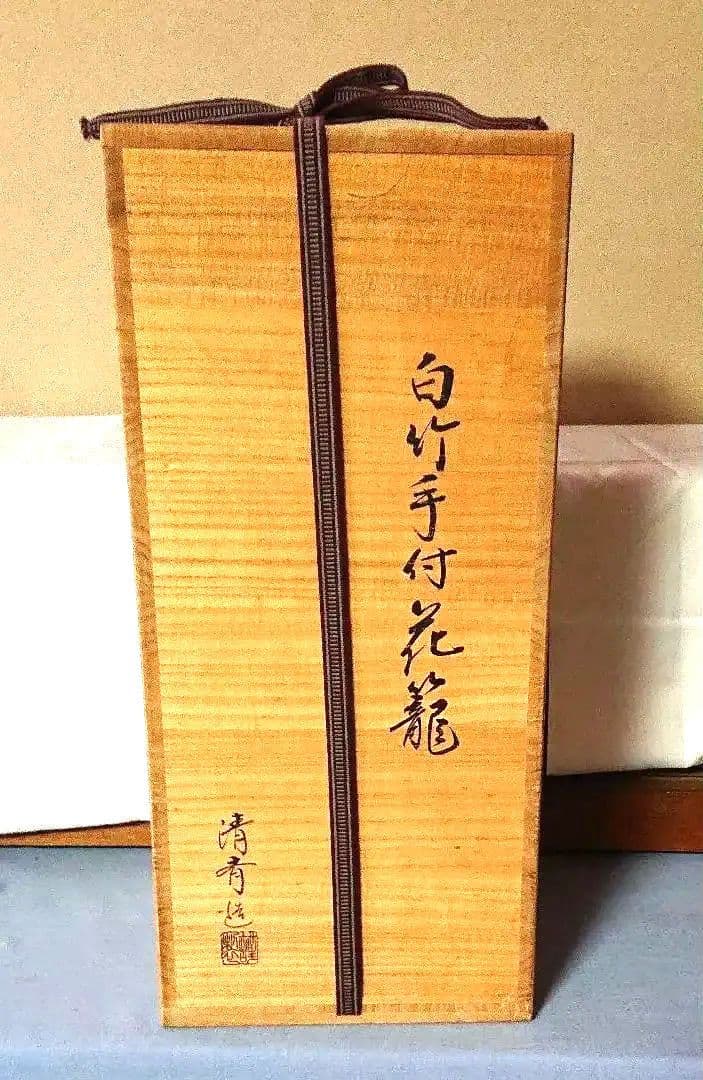 白竹手付花籠
清有造